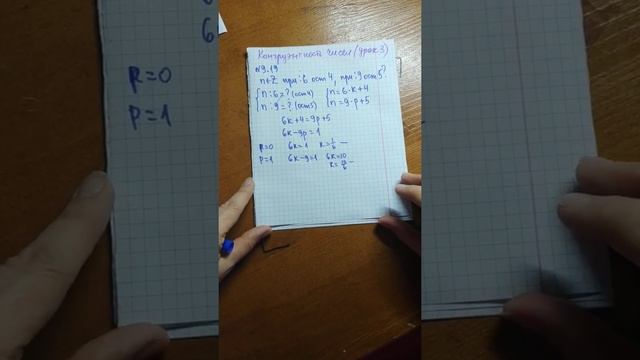 Конгруэнтность чисел (урок 3)
№9.19
n∈Z при :6 ост 4, при :9 ост 5?
{ n:6=? (ост4) { n=6·k+4
{ n:9=? (ост5) { n=9·p+5
6k+4=9p+5
6k-9p=1
p=0 6k=1 k=1/6 —
p=1 6k-9=1 6k=10
k=10/6 —
6
p=0
p=1